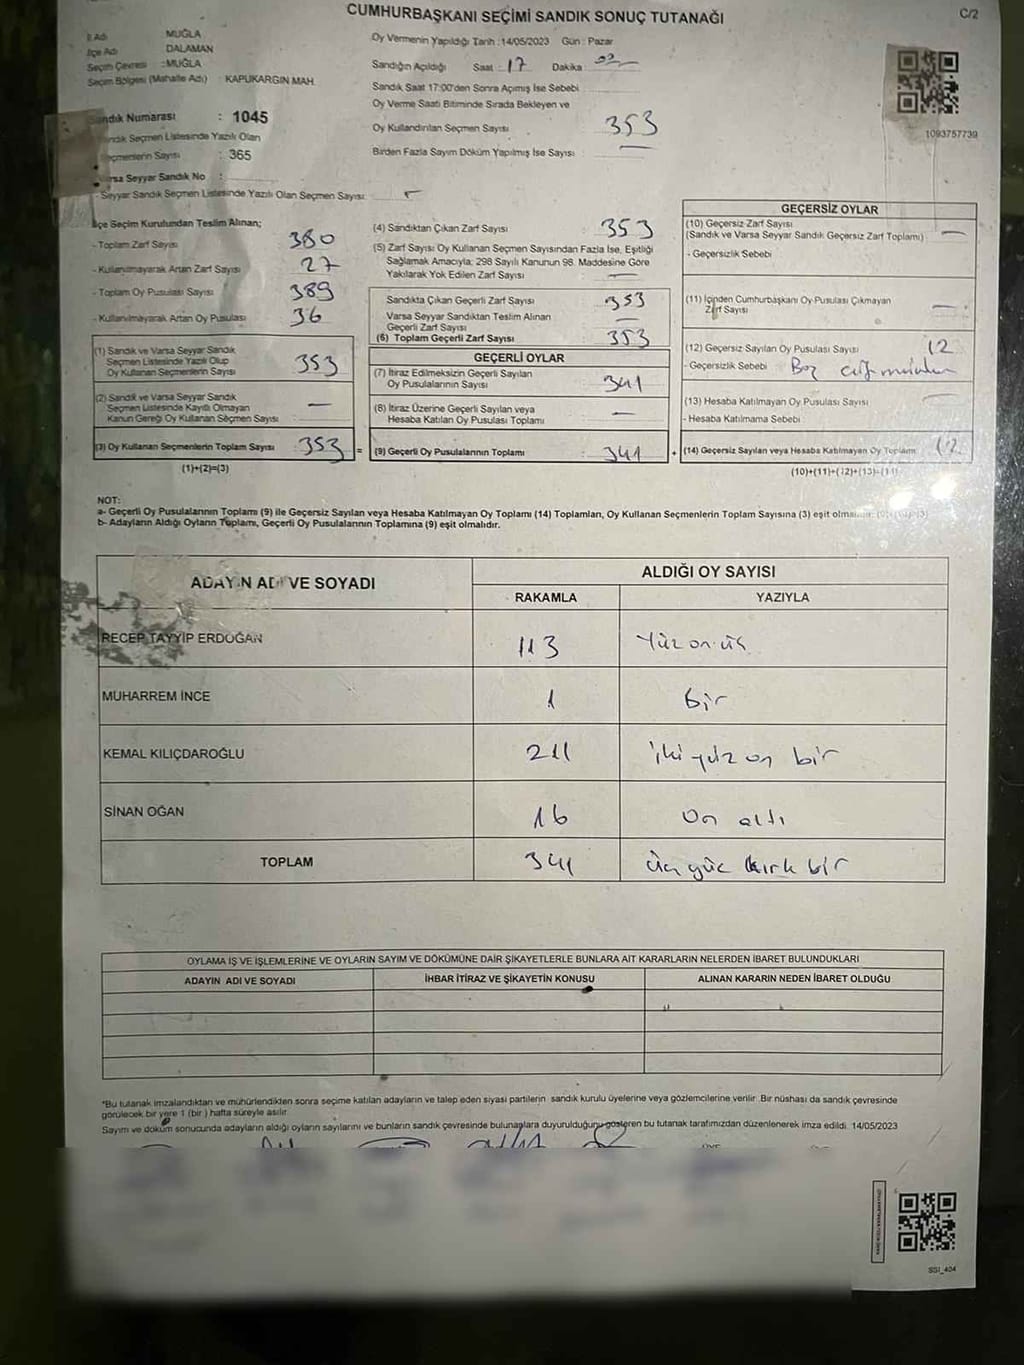 CUMHURBAŞKANI SEÇİMİ SANDIK SONUÇ TUTANAĞI
C/2
İl Adı MUĞLA
İlçe Adı DALAMAN
Seçim Çevresi :MUĞLA
Seçim Bölgesi (Mahalle Adı) : KAPUKARGIN MAH.
Sandık Numarası : 1045
Sandık Seçmen Listesinde Yazılı Olan
Seçmenlerin Sayısı : 365
Varsa Seyyar Sandık No :
Seyyar Sandık Seçmen Listesinde Yazılı Olan Seçmen Sayısı: -
Oy Vermenin Yapıldığı Tarih :14/05/2023 Gün : Pazar
Sandığın Açıldığı Saat : 17 Dakika :
Sandık Saat 17:00'den Sonra Açımış İse Sebebi
Oy Verme Saati Bitiminde Sırada Bekleyen ve
Oy Kullandırılan Seçmen Sayısı : 353
Birden Fazla Sayım Döküm Yapılmış İse Sayısı : —
1093757739
İlçe Seçim Kurulundan Teslim Alınan;
- Toplam Zarf Sayısı : 380
- Kullanılmayarak Artan Zarf Sayısı : 27
- Toplam Oy Pusulası Sayısı : 389
- Kullanılmayarak Artan Oy Pusulası : 36
(1) Sandık ve Varsa Seyyar Sandık
Seçmen Listesinde Yazılı Olup
Oy Kullanan Seçmenlerin Sayısı : 353
(2) Sandık ve Varsa Seyyar Sandık
Seçmen Listesinde Kayıtlı Olmayan
Kanun Gereği Oy Kullanan Seçmen Sayısı : —
(3) Oy Kullanan Seçmenlerin Toplam Sayısı : 353 =
(1)+(2)=(3)
(4) Sandıktan Çıkan Zarf Sayısı : 353
(5) Zarf Sayısı Oy Kullanan Seçmen Sayısından Fazla İse, Eşitliği
Sağlamak Amacıyla; 298 Sayılı Kanunun 98. Maddesine Göre
Yakılarak Yok Edilen Zarf Sayısı : —
Sandıkta Çıkan Geçerli Zarf Sayısı : 353
Varsa Seyyar Sandıktan Teslim Alınan
Geçerli Zarf Sayısı : —
(6) Toplam Geçerli Zarf Sayısı : 353
GEÇERLİ OYLAR
(7) İtiraz Edilmeksizin Geçerli Sayılan
Oy Pusulalarının Sayısı : 341
(8) İtiraz Üzerine Geçerli Sayılan veya
Hesaba Katılan Oy Pusulası Toplamı : —
(9) Geçerli Oy Pusulalarının Toplamı : 341 +
GEÇERSİZ OYLAR
(10) Geçersiz Zarf Sayısı
(Sandık ve Varsa Seyyar Sandık Geçersiz Zarf Toplamı) : —
- Geçersizlik Sebebi :
(11) İçinden Cumhurbaşkanı Oy Pusulası Çıkmayan
Zarf Sayısı : —
(12) Geçersiz Sayılan Oy Pusulası Sayısı : 12
- Geçersizlik Sebebi :
(13) Hesaba Katılmayan Oy Pusulası Sayısı : —
- Hesaba Katılmama Sebebi :
(14) Geçersiz Sayılan veya Hesaba Katılmayan Oy Toplamı : 12
(10)+(11)+(12)+(13)=(14)
NOT:
a- Geçerli Oy Pusulalarının Toplamı (9) ile Geçersiz Sayılan veya Hesaba Katılmayan Oy Toplamı (14) Toplamları, Oy Kullanan Seçmenlerin Toplam Sayısına (3) eşit olmalıdır.
b- Adayların Aldığı Oyların Toplamı, Geçerli Oy Pusulalarının Toplamına (9) eşit olmalıdır.
ADAYIN ADI VE SOYADI
ALDIĞI OY SAYISI
RAKAMLA YAZIYLA
RECEP TAYYİP ERDOĞAN 113 Yüz on üç
MUHARREM İNCE 1 Bir
KEMAL KILIÇDAROĞLU 211 iki yüz on bir
SİNAN OĞAN 16 On altı
TOPLAM 341 üç yüz kırk bir
OYLAMA İŞ VE İŞLEMLERİNE VE OYLARIN SAYIM VE DÖKÜMÜNE DAİR ŞİKAYETLERLE BUNLARA AİT KARARLARIN NELERDEN İBARET BULUNDUKLARI
ADAYIN ADI VE SOYADI İHBAR İTİRAZ VE ŞİKAYETİN KONUSU ALINAN KARARIN NEDEN İBARET OLDUĞU
*Bu tutanak imzalandıktan ve mühürlendikten sonra seçime katılan adayların ve talep eden siyasi partilerin sandık kurulu üyelerine veya gözlemcilerine verilir. Bir nüshası da sandık çevresinde
görülecek bir yere 1 (bir ) hafta süreyle asılır.
Sayım ve döküm sonucunda adayların aldığı oyların sayılarını ve bunların sandık çevresinde bulunanlara duyurulduğunu gösteren bu tutanak tarafımızdan düzenlenerek imza edildi. 14/05/2023
SSİ_404